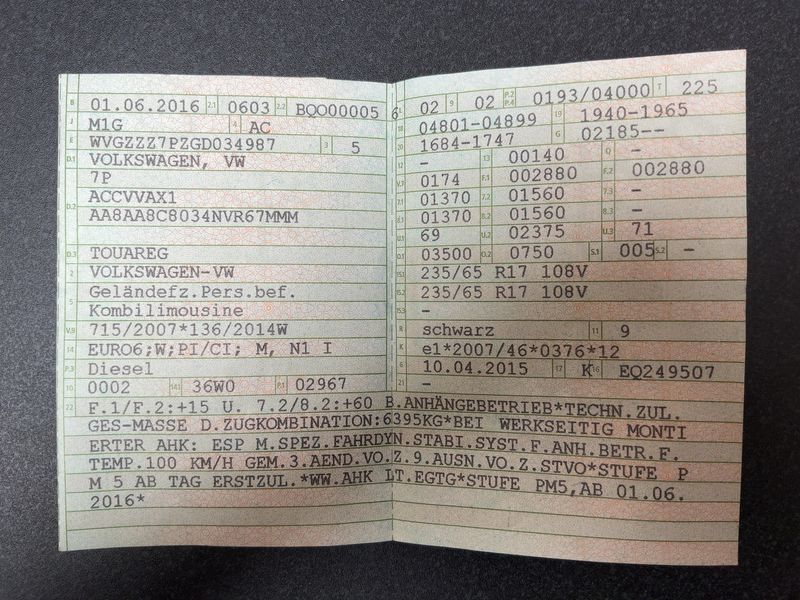 B 01.06.2016 2.1 0603 2.2 BQO00005 6
J M1G 4 AC
E WVGZZZ7PZGD034987 3 5
D.1 VOLKSWAGEN, VW
7P
D.2 ACCVVAX1
AA8AA8C8034NVR67MMM
D.3 TOUAREG
2 VOLKSWAGEN-VW
5 Geländefz.Pers.bef.
Kombilimousine
V.9 715/2007*136/2014W
14 EURO6;W;PI/CI; M, N1 I
P.3 Diesel
10 0002 14.1 36W0 P.1 02967
22 F.1/F.2:+15 U. 7.2/8.2:+60 B.ANHÄNGEBETRIEB*TECHN.ZUL.
GES-MASSE D.ZUGKOMBINATION:6395KG*BEI WERKSEITIG MONTI
ERTER AHK: ESP M.SPEZ.FAHRDYN.STABI.SYST.F.ANH.BETR.F.
TEMP.100 KM/H GEM.3.AEND.VO.Z.9.AUSN.VO.Z.STVO*STUFE P
M 5 AB TAG ERSTZUL.*WW.AHK LT.EGTG*STUFE PM5,AB 01.06.
2016*
L 02 9 02 P.2 P.4 0193/04000 T 225
18 04801-04899 19 1940-1965
20 1684-1747 G 02185--
12 - 13 00140 Q -
V.7 0174 F.1 002880 F.2 002880
7.1 01370 7.2 01560 7.3 -
8.1 01370 8.2 01560 8.3 -
U.1 69 U.2 02375 U.3 71
O.1 03500 O.2 0750 S.1 005 S.2 -
15.1 235/65 R17 108V
15.2 235/65 R17 108V
15.3 -
R schwarz 11 9
K e1*2007/46*0376*12
6 10.04.2015 17 K 16 EQ249507
21 -